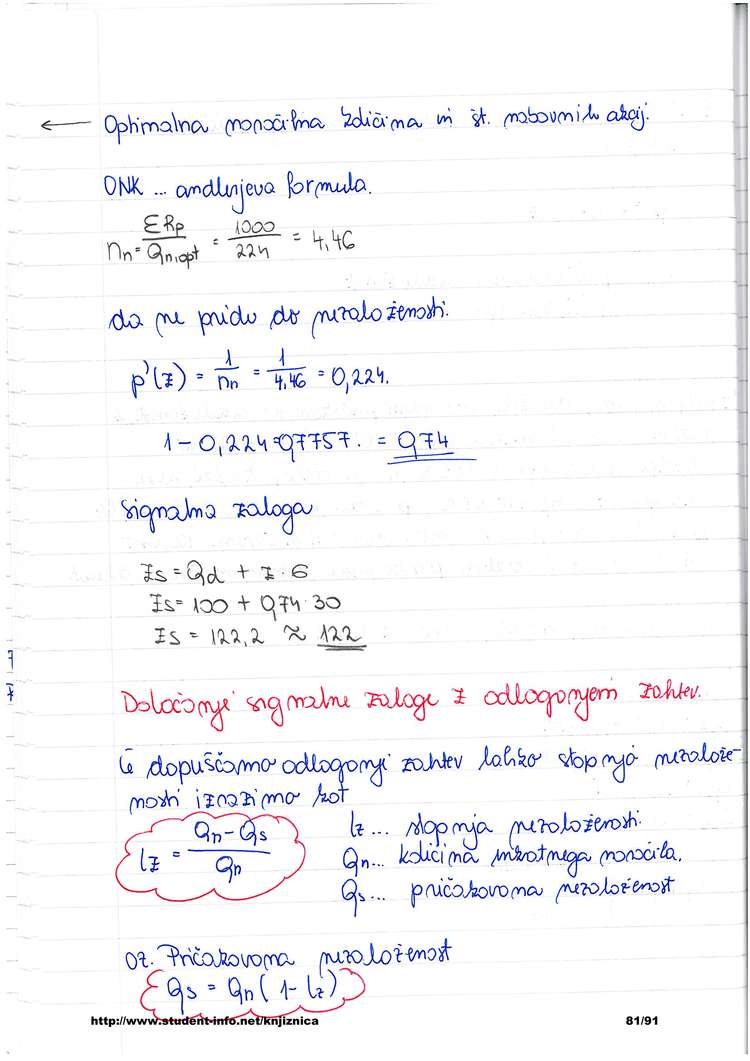 ← Optimalna naročilna količina in št. nabavnih akcij.
ONK ... andlerjeva formula.
nn = ΣRp / Qn,opt = 1000 / 224 = 4,46
da ne pride do nezaloženosti.
p'(z) = 1 / nn = 1 / 4,46 = 0,224.
1 - 0,224 = 0,7757. = 0,74
signalna zaloga
Zs = Qd + z · 6
Zs = 100 + 0,74 · 30
Zs = 122,2 ≈ 122
Določanje signalne zaloge z odlogonjem zahtev.
če dopuščamo odlogonje zahtev lahko stopnjo nezalože-
nosti izrazimo kot
lz = Qn - Qs / Qn
lz ... stopnja nezaloženosti.
Qn... količina enkratnega naročila.
Qs ... pričakovana nezaloženost
oz. Pričakovana nezaloženost
Qs = Qn (1 - lz)
http://www.student-info.net/knjiznica 81/91